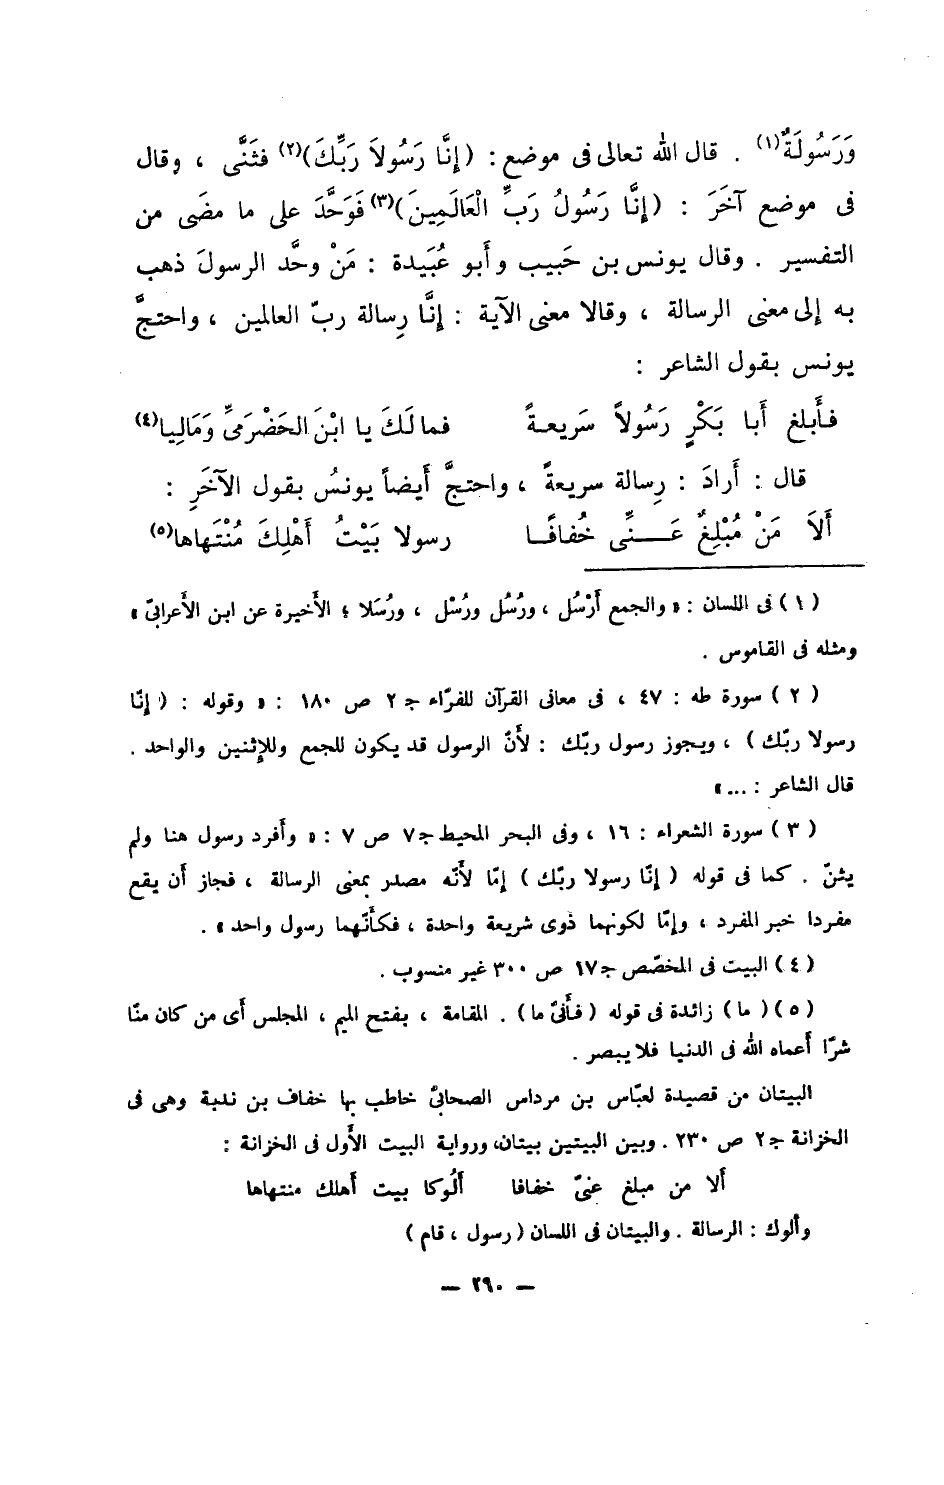 وَرَسُولَةٌ(١) . قال الله تعالى فى موضع : (إِنَّا رَسُولاَ رَبِّكَ)(٢) فثَنَّى ، وقال
فى موضع آخَرَ : (إِنَّا رَسُولُ رَبِّ الْعَالَمِينَ)(٣) فَوَحَّدَ على ما مضَى من
التفسير . وقال يونس بن حَبيب وأبو عُبَيدة : مَنْ وحَّد الرسولَ ذهب
به إلى معنى الرسالة ، وقالا معنى الآية : إنَّا رِسالة ربّ العالمين ، واحتجَّ
يونس بقول الشاعر :
فأَبلغ أَبا بَكْرٍ رَسُولاً سَريعـةً فمالَكَ يا ابْنَ الحَضْرَمىِّ وَمَالِيا(٤)
قال : أَرادَ : رِسالة سريعةً ، واحتجَّ أَيضاً يونسُ بقول الآخَرِ :
أَلاَ مَنْ مُبْلِغٌ عَــــنِّى خُفافًـا رسولا بَيْتُ أَهْلِكَ مُنْتَهاها(٥)
(١) فى اللسان : « والجمع أَرْسُل ، ورُسُل ورُسْل ، ورُسَلا ؛ الأَخيرة عن ابن الأَعرابىّ »
ومثله فى القاموس .
(٢) سورة طه : ٤٧ ، فى معانى القرآن للفرّاء جـ ٢ ص ١٨٠ : « وقوله : (إنّا
رسولا ربّك) ، ويجوز رسول ربّك : لأَنّ الرسول قد يكون للجمع وللإثنين والواحد .
قال الشاعر : ... »
(٣) سورة الشعراء : ١٦ ، وفى البحر المحيط جـ٧ ص ٧ : « وأفرد رسول هنا ولم
يثنّ . كما فى قوله (إنّا رسولا ربّك) إمّا لأَنّه مصدر بمعنى الرسالة ، فجاز أن يقع
مفردا خبر المفرد ، وإمّا لكونهما ذوى شريعة واحدة ، فكأَنّهما رسول واحد » .
(٤) البيت فى المخصّص جـ١٧ ص ٣٠٠ غير منسوب .
(٥) (ما) زائدة فى قوله (فأَىّ ما) . المقامة ، بفتح الميم ، المجلس أى من كان منّا
شرّا أعماه الله فى الدنيا فلا يبصر .
البيتان من قصيدة لعبّاس بن مرداس الصحابىّ خاطب بها خفاف بن ندبة وهى فى
الخزانة جـ٢ ص ٢٣٠ . وبين البيتين بيتان، ورواية البيت الأَول فى الخزانة :
ألا من مبلغ عنىّ خفافا أَلُوكا بيت أهلك منتهاها
وألوك : الرسالة . والبيتان فى اللسان (رسول ، قام)
— ٢٩٠ —